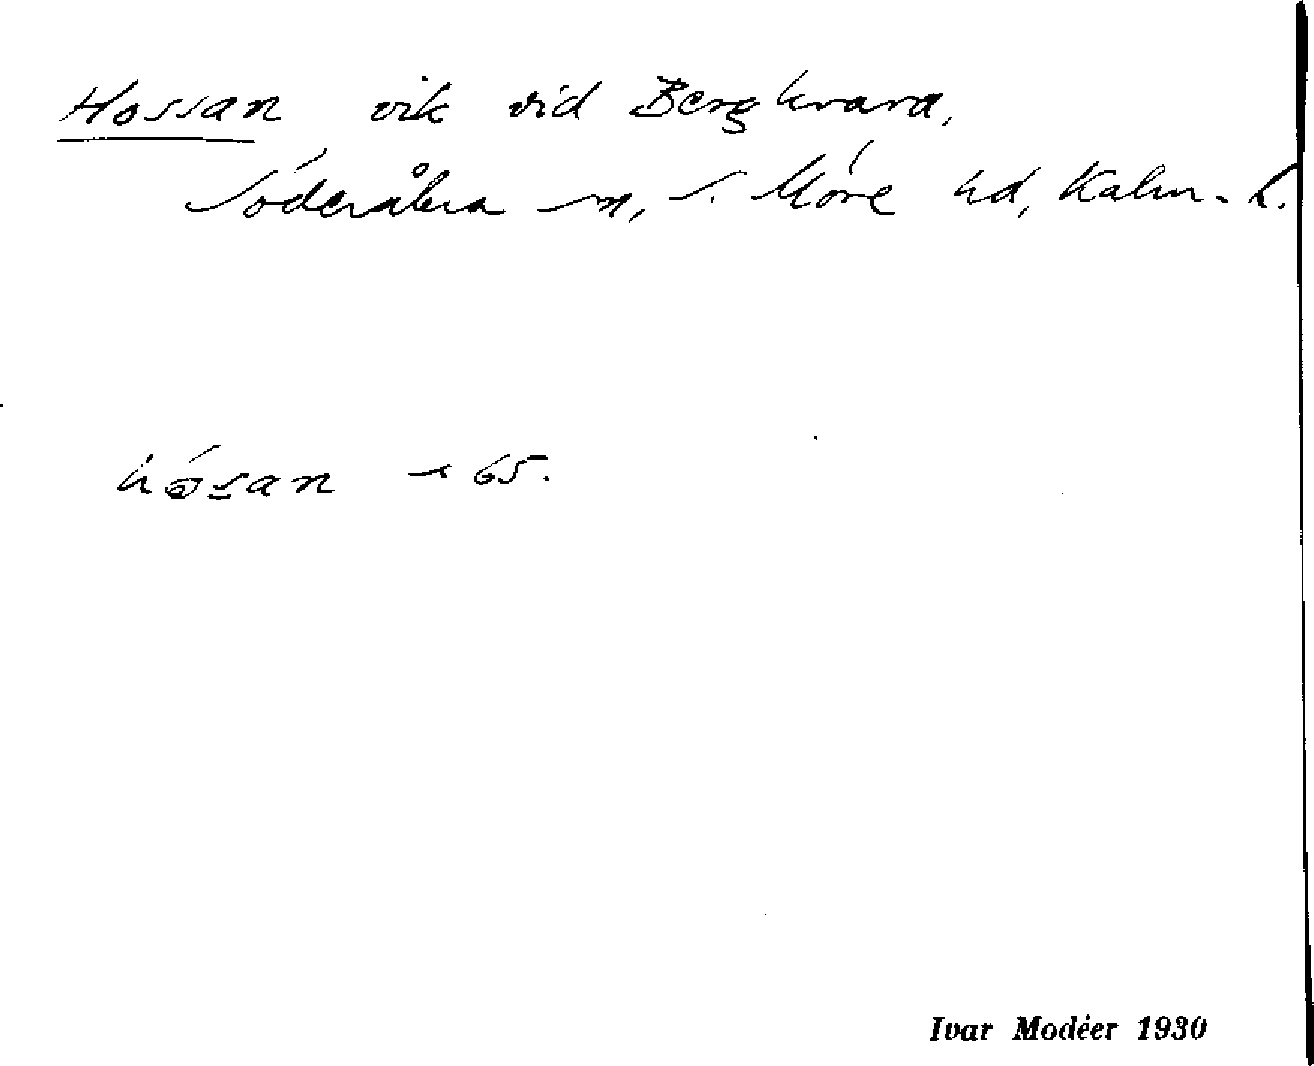 Hossan vik vid Bergkvara,
Söderåkra sn, S. Möre hd, Kalm. l.
hɵ́s̲an 65.
Ivar Modéer 1930